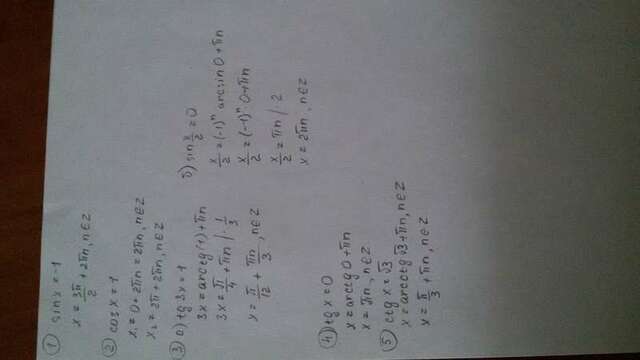 ① sin x = -1
x = 3π/2 + 2πn, n∈Z
② cos x = 1
x₁ = 0 + 2πn = 2πn, n∈Z
x₂ = 2π + 2πn, n∈Z
③ а) tg 3x = 1
3x = arctg(1) + πn
3x = π/4 + πn | · 1/3
x = π/12 + πn/3, n∈Z
б) sin x/2 = 0
x/2 = (-1)ⁿ arcsin 0 + πn
x/2 = (-1)ⁿ 0 + πn
x/2 = πn | · 2
x = 2πn, n∈Z
④ tg x = 0
x = arctg 0 + πn
x = πn, n∈Z
⑤ ctg x = √3
x = arcctg √3 + πn, n∈Z
x = π/3 + πn, n∈Z